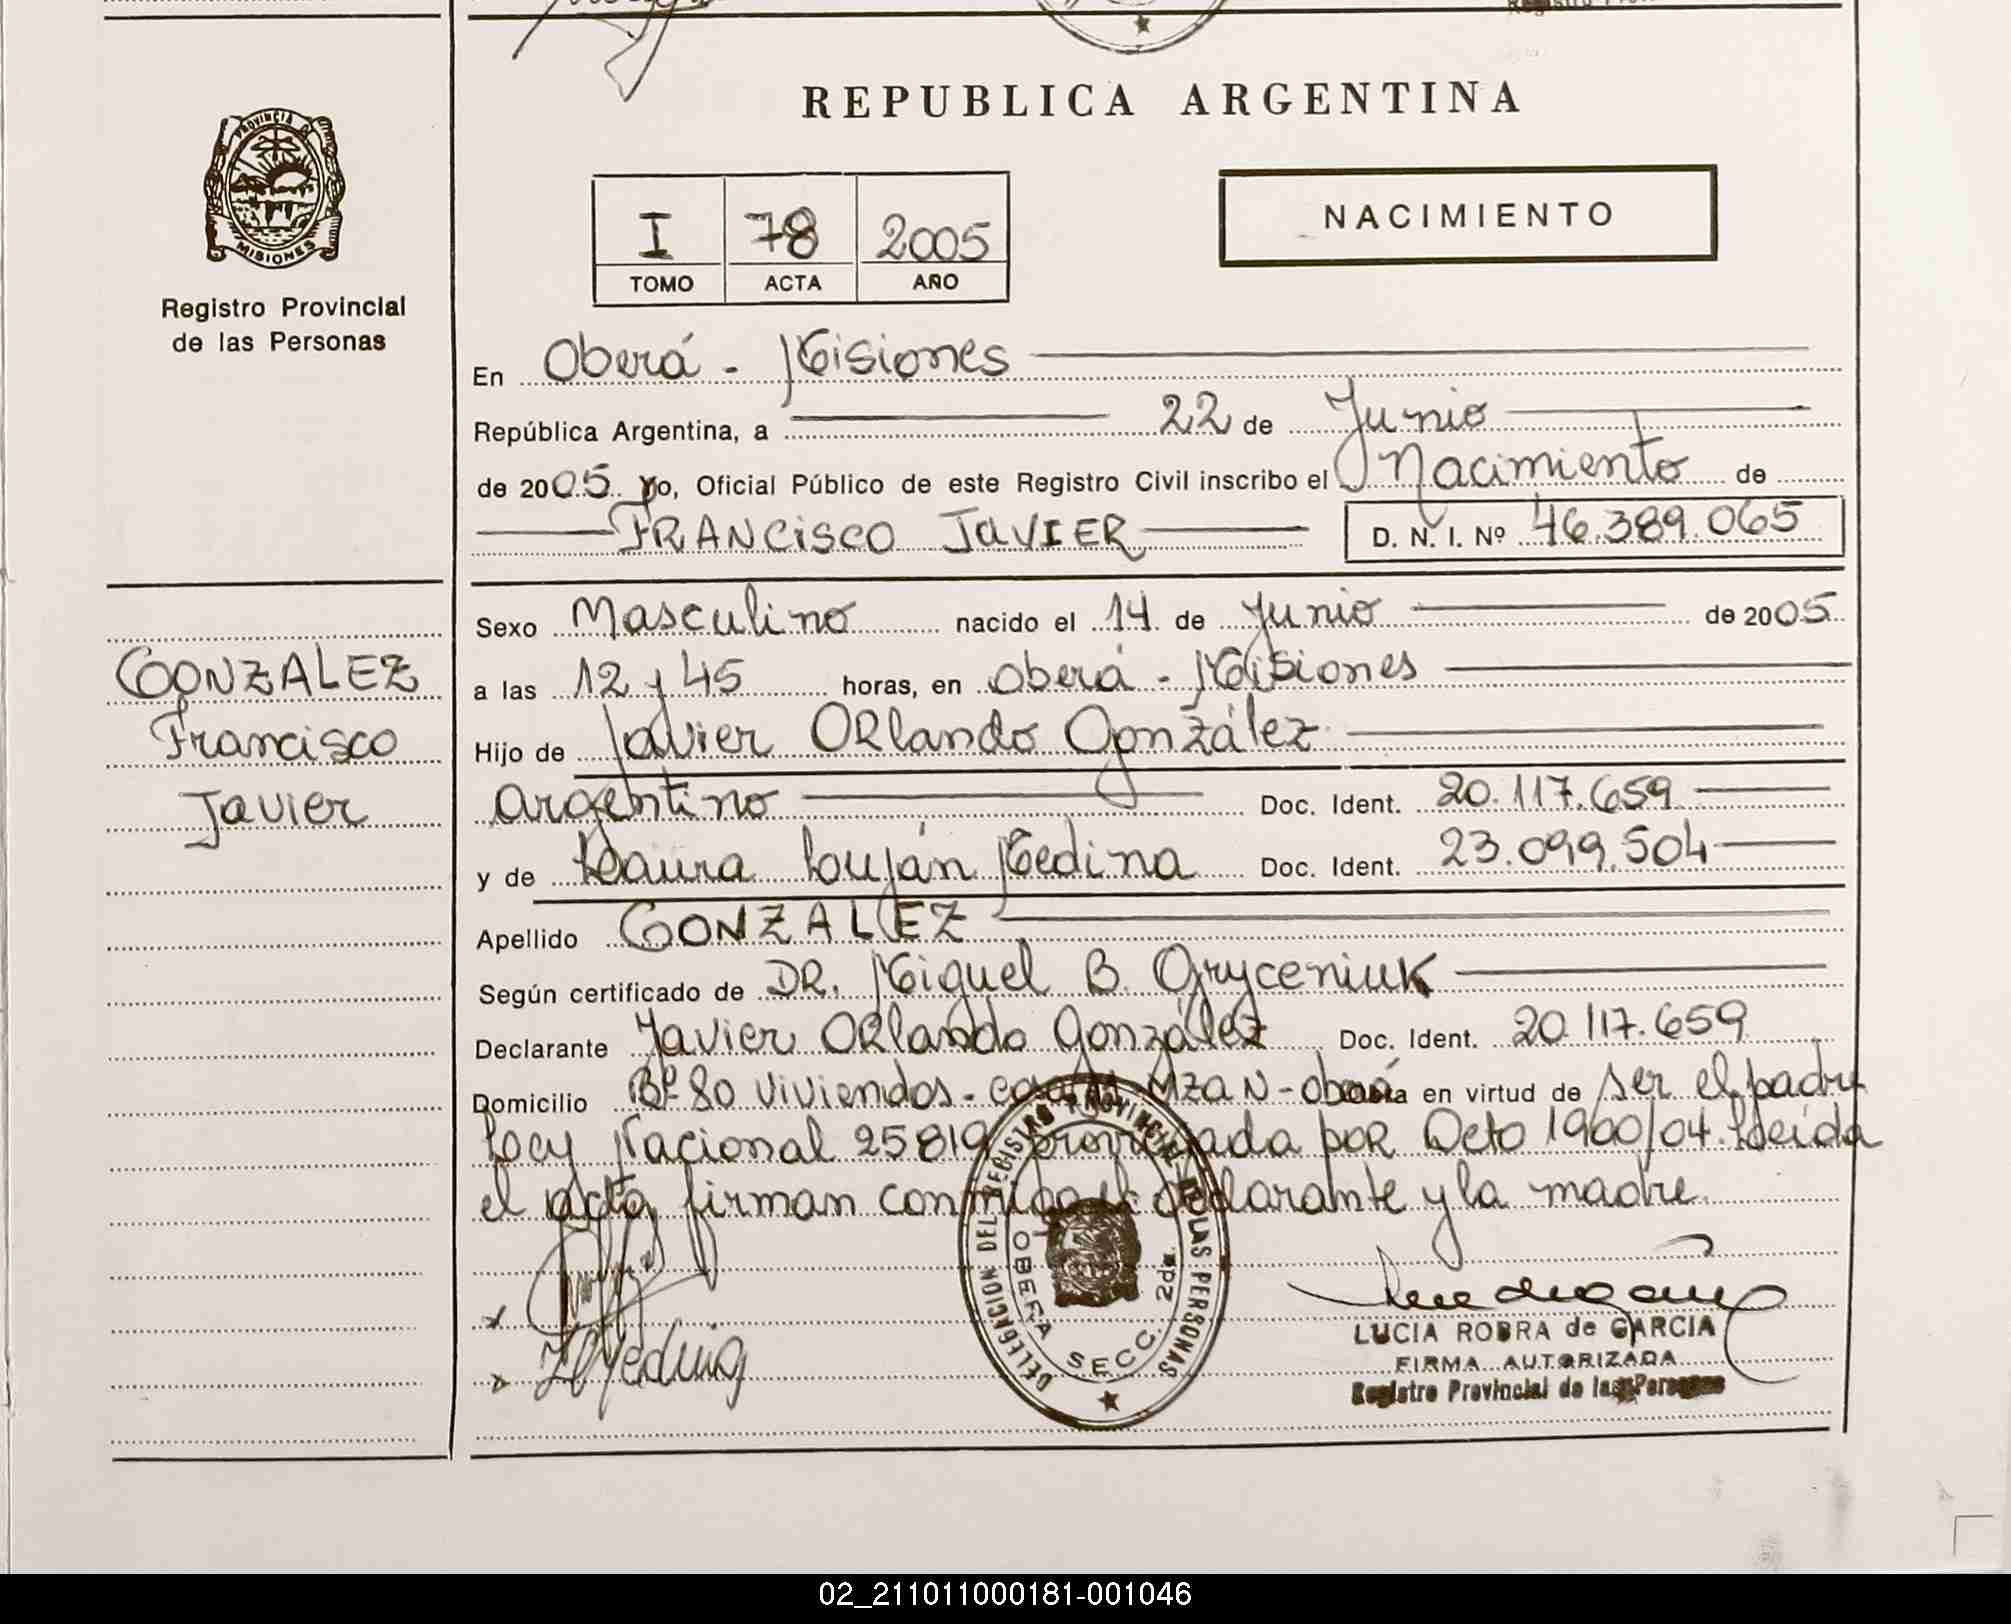 REPUBLICA ARGENTINA
PROVINCIA D
MISIONES
Registro Provincial
de las Personas
I 78 2005
TOMO ACTA AÑO
NACIMIENTO
En Oberá - Misiones
República Argentina, a 22 de Junio
de 2005 yo, Oficial Público de este Registro Civil inscribo el Nacimiento de
FRANCISCO JAVIER D. N. I. Nº 46.389.065
GONZALEZ
Francisco
Javier
Sexo Masculino nacido el 14 de Junio de 2005
a las 12 y 45 horas, en Oberá - Misiones
Hijo de Javier Orlando González
argentino Doc. Ident. 20.117.659
y de Laura Luján Medina Doc. Ident. 23.099.504
Apellido GONZALEZ
Según certificado de DR. Miguel B. Gryceniuk
Declarante Javier Orlando González Doc. Ident. 20.117.659
Domicilio Bº 80 viviendas - Mza N - Oberá en virtud de ser el padre
Ley Nacional 25819 prorrogada por Dcto 1960/04. Leída
el acta, firman conmigo el declarante y la madre.
DELEGACION DEL REGISTRO PROVINCIAL DE LAS PERSONAS
OBERA SECC. 2da.
LUCIA ROBRA de GARCIA
FIRMA AUTORIZADA
Registro Provincial de las Personas
02_211011000181-001046